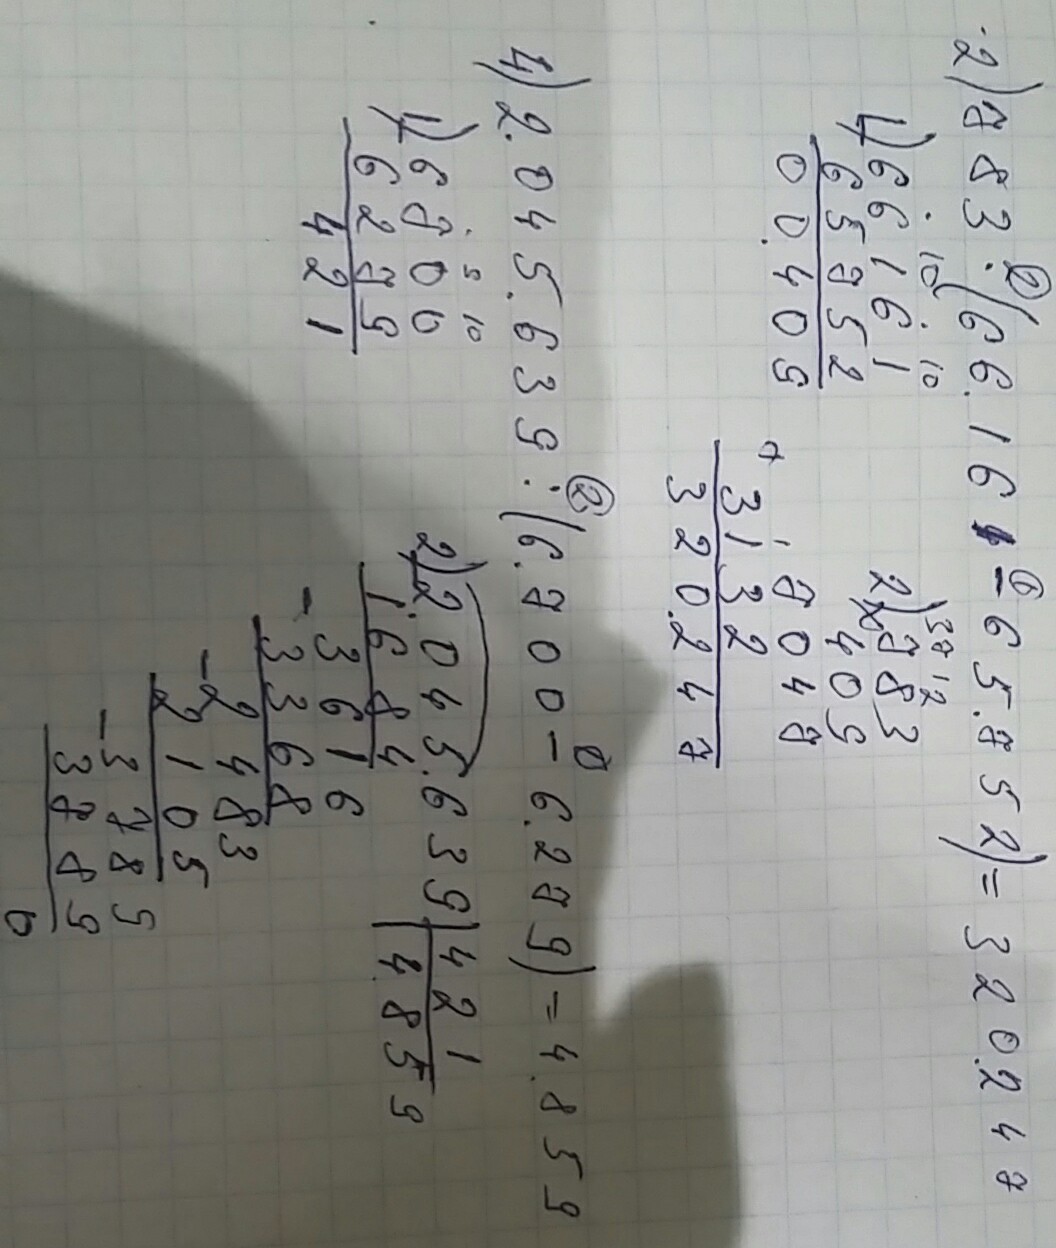 2) 783·(66.161-65.752)=320.247
1) 66161
65752
00.409
2) 783
409
+ 7047
3132
320.247
4) 2.045.639:(6.700-6.279)=4.859
1) 6700
6279
421
2) 2045.639 | 421
1.684 | 4.859
- 3616
3368
- 2483
2105
- 3789
3789
0